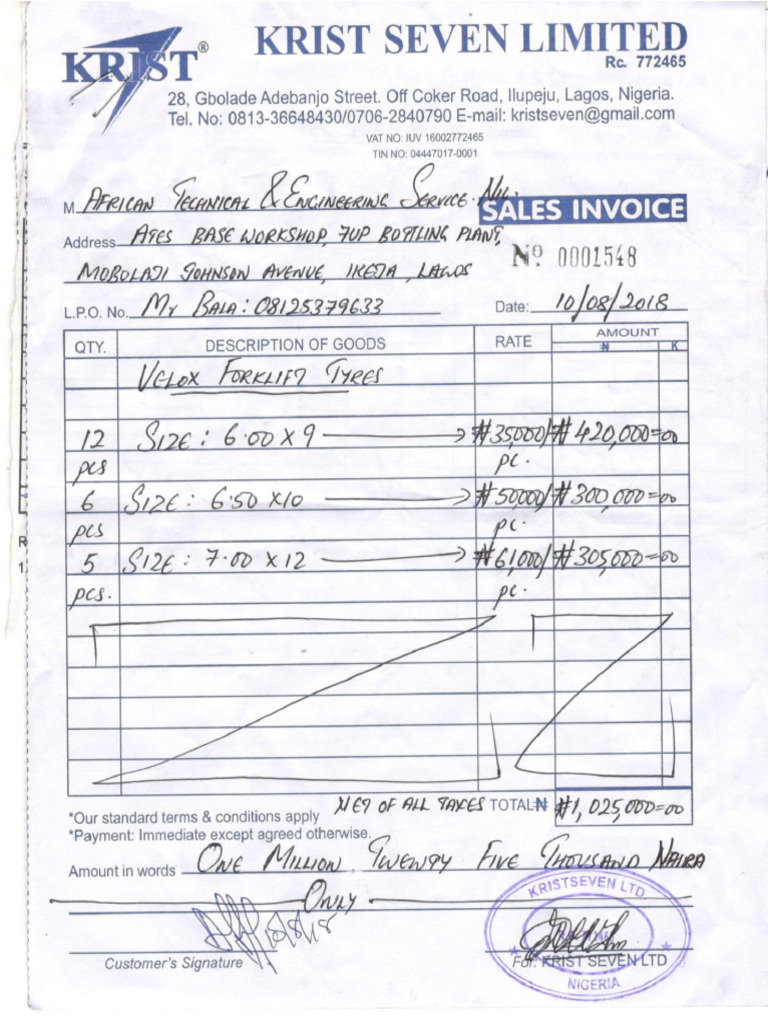 KRIST®
KRIST SEVEN LIMITED
Rc. 772465
28, Gbolade Adebanjo Street. Off Coker Road, Ilupeju, Lagos, Nigeria.
Tel. No: 0813-36648430/0706-2840790 E-mail: kristseven@gmail.com
VAT NO: IUV 16002772465
TIN NO: 04447017-0001
M AFRICAN TECHNICAL & ENGINEERING SERVICE. Nig.
SALES INVOICE
Address ATES BASE WORKSHOP, 7UP BOTTLING PLANT,
Nº 0001548
MOBOLAJI JOHNSON AVENUE, IKEJA, LAGOS
L.P.O. No. Mr BALA: 08125379633 Date: 10/08/2018
QTY. DESCRIPTION OF GOODS RATE AMOUNT
₦ K
VELOX FORKLIFT TYRES
12 SIZE: 6.00 X 9 ₦35,000/ ₦420,000=00
pcs pc.
6 SIZE: 6.50 X10 ₦50000/ ₦300,000=00
pcs pc.
5 SIZE: 7.00 X 12 ₦61,000/ ₦305,000=00
pcs. pc.
NET OF ALL TAXES TOTAL ₦ ₦1,025,000=00
*Our standard terms & conditions apply
*Payment: Immediate except agreed otherwise.
Amount in words ONE MILLION, TWENTY FIVE THOUSAND NAIRA
ONLY
KRISTSEVEN LTD
Customer's Signature
For: KRIST SEVEN LTD
NIGERIA